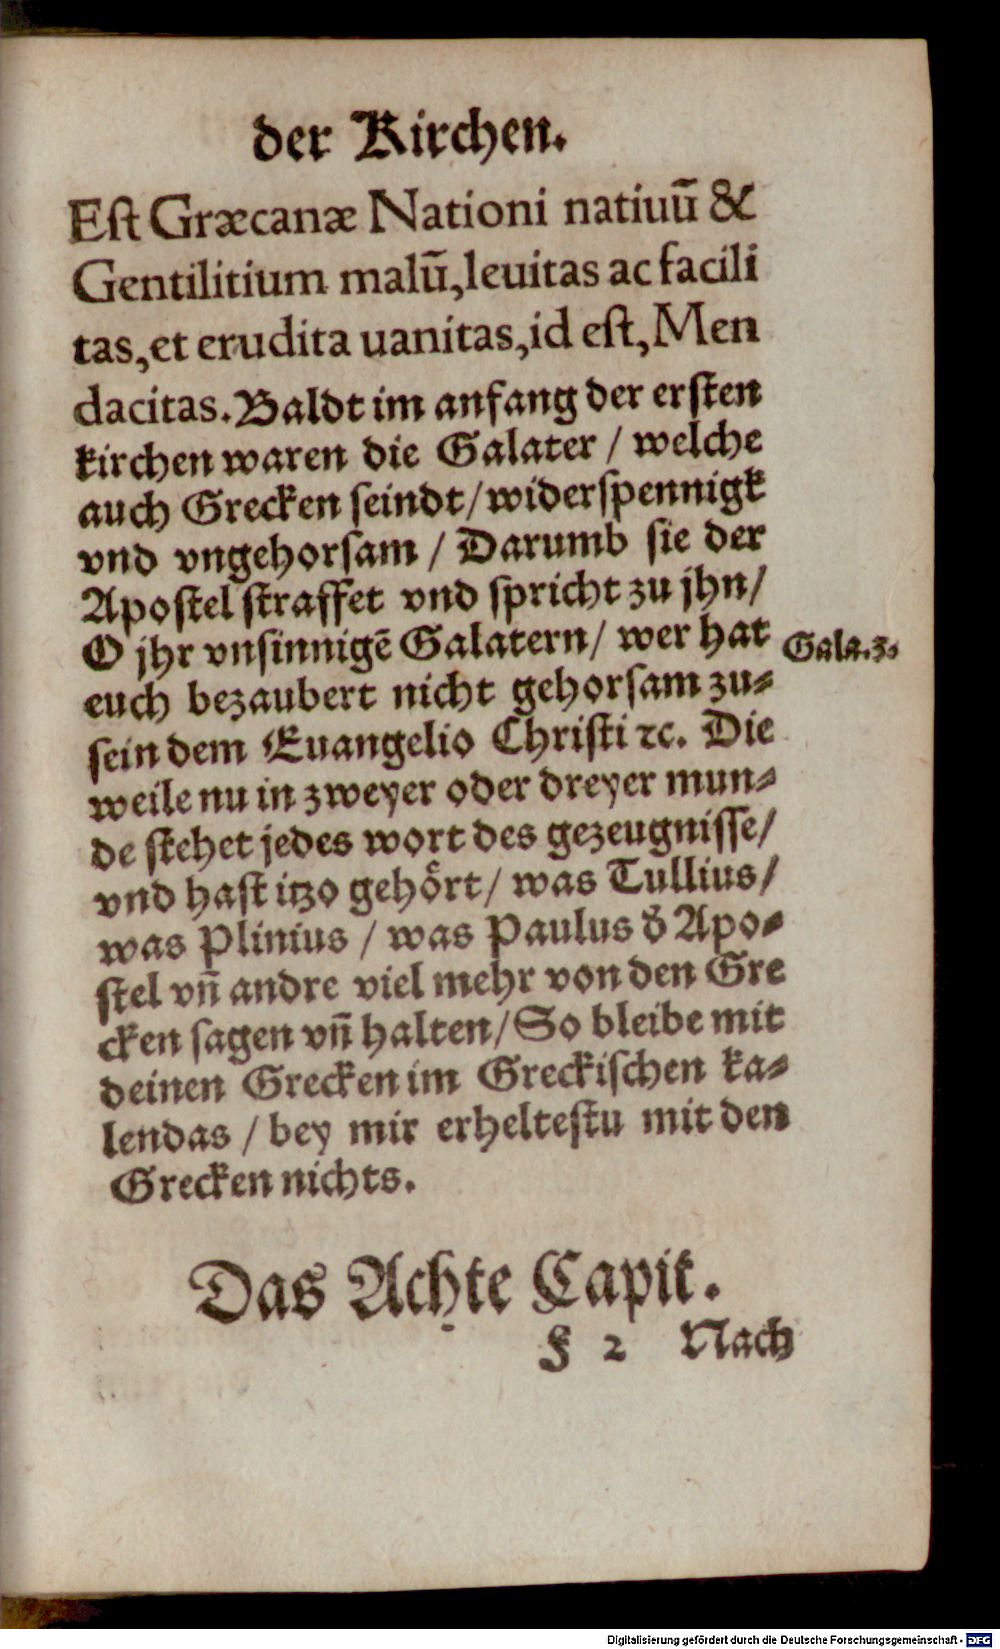 der Kirchen.
Est Græcanæ Nationi natiuū &
Gentilitium malū, leuitas ac facili
tas, et erudita uanitas, id est, Men
dacitas. Baldt im anfang der ersten
kirchen waren die Galater / welche
auch Grecken seindt / widerspennigk
vnd vngehorsam / Darumb sie der
Apostel straffet vnd spricht zu jhn /
O jhr vnsinnigē Galatern / wer hat
Gala.3.
euch bezaubert nicht gehorsam zu-
sein dem Euangelio Christi ꝛc. Die
weile nu in zweyer oder dreyer mun-
de stehet jedes wort des gezeugnisse /
vnd hast itzo gehört / was Tullius /
was Plinius / was Paulus d̕ Apo-
stel vn̄ andre viel mehr von den Gre
cken sagen vn̄ halten / So bleibe mit
deinen Grecken im Greckischen ka-
lendas / bey mir erheltestu mit den
Grecken nichts.
Das Achte Capit.
F 2 Nach
Digitalisierung gefördert durch die Deutsche Forschungsgemeinschaft - DFG